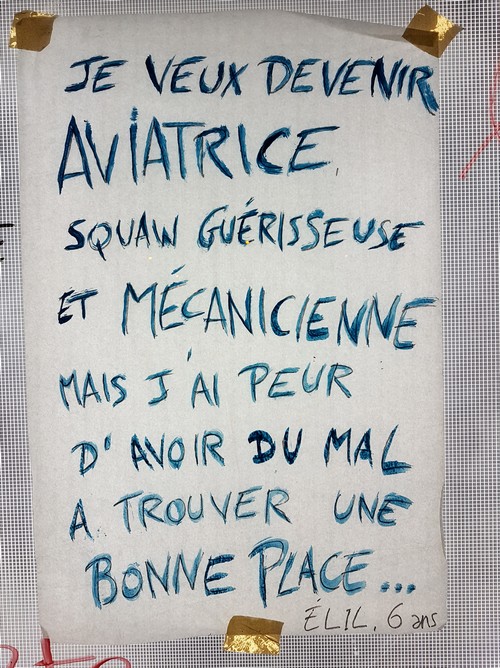 JE VEUX DEVENIR
AVIATRICE,
SQUAW GUÉRISSEUSE
ET MÉCANICIENNE
MAIS J'AI PEUR
D'AVOIR DU MAL
A TROUVER UNE
BONNE PLACE...
ÉLIL, 6 ans